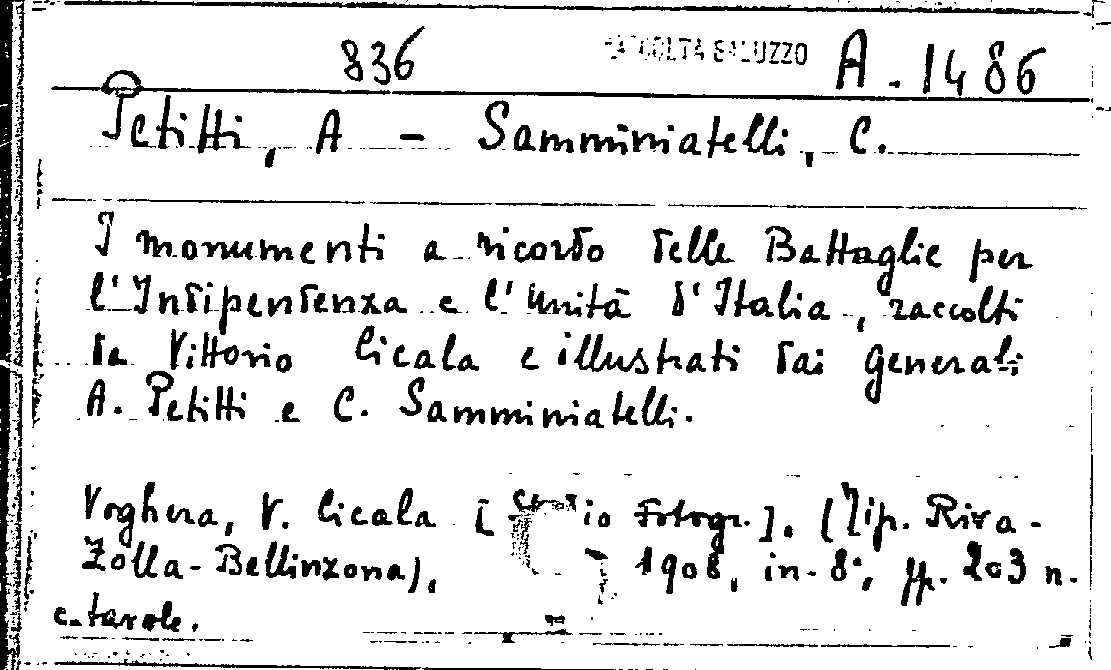 836 RACCOLTA SALUZZO A. 1486
Petitti, A - Samminiatelli, C.
I monumenti a ricordo delle Battaglie per
l'Indipendenza e l'Unità d'Italia, raccolti
da Vittorio Cicala e illustrati dai generali
A. Petitti e C. Samminiatelli.
Voghera, V. Cicala [Studio Fotogr.]. (Tip. Riva-
Zolla-Bellinzona), 1908, in-8°, pp. 203 n.
e tavole.